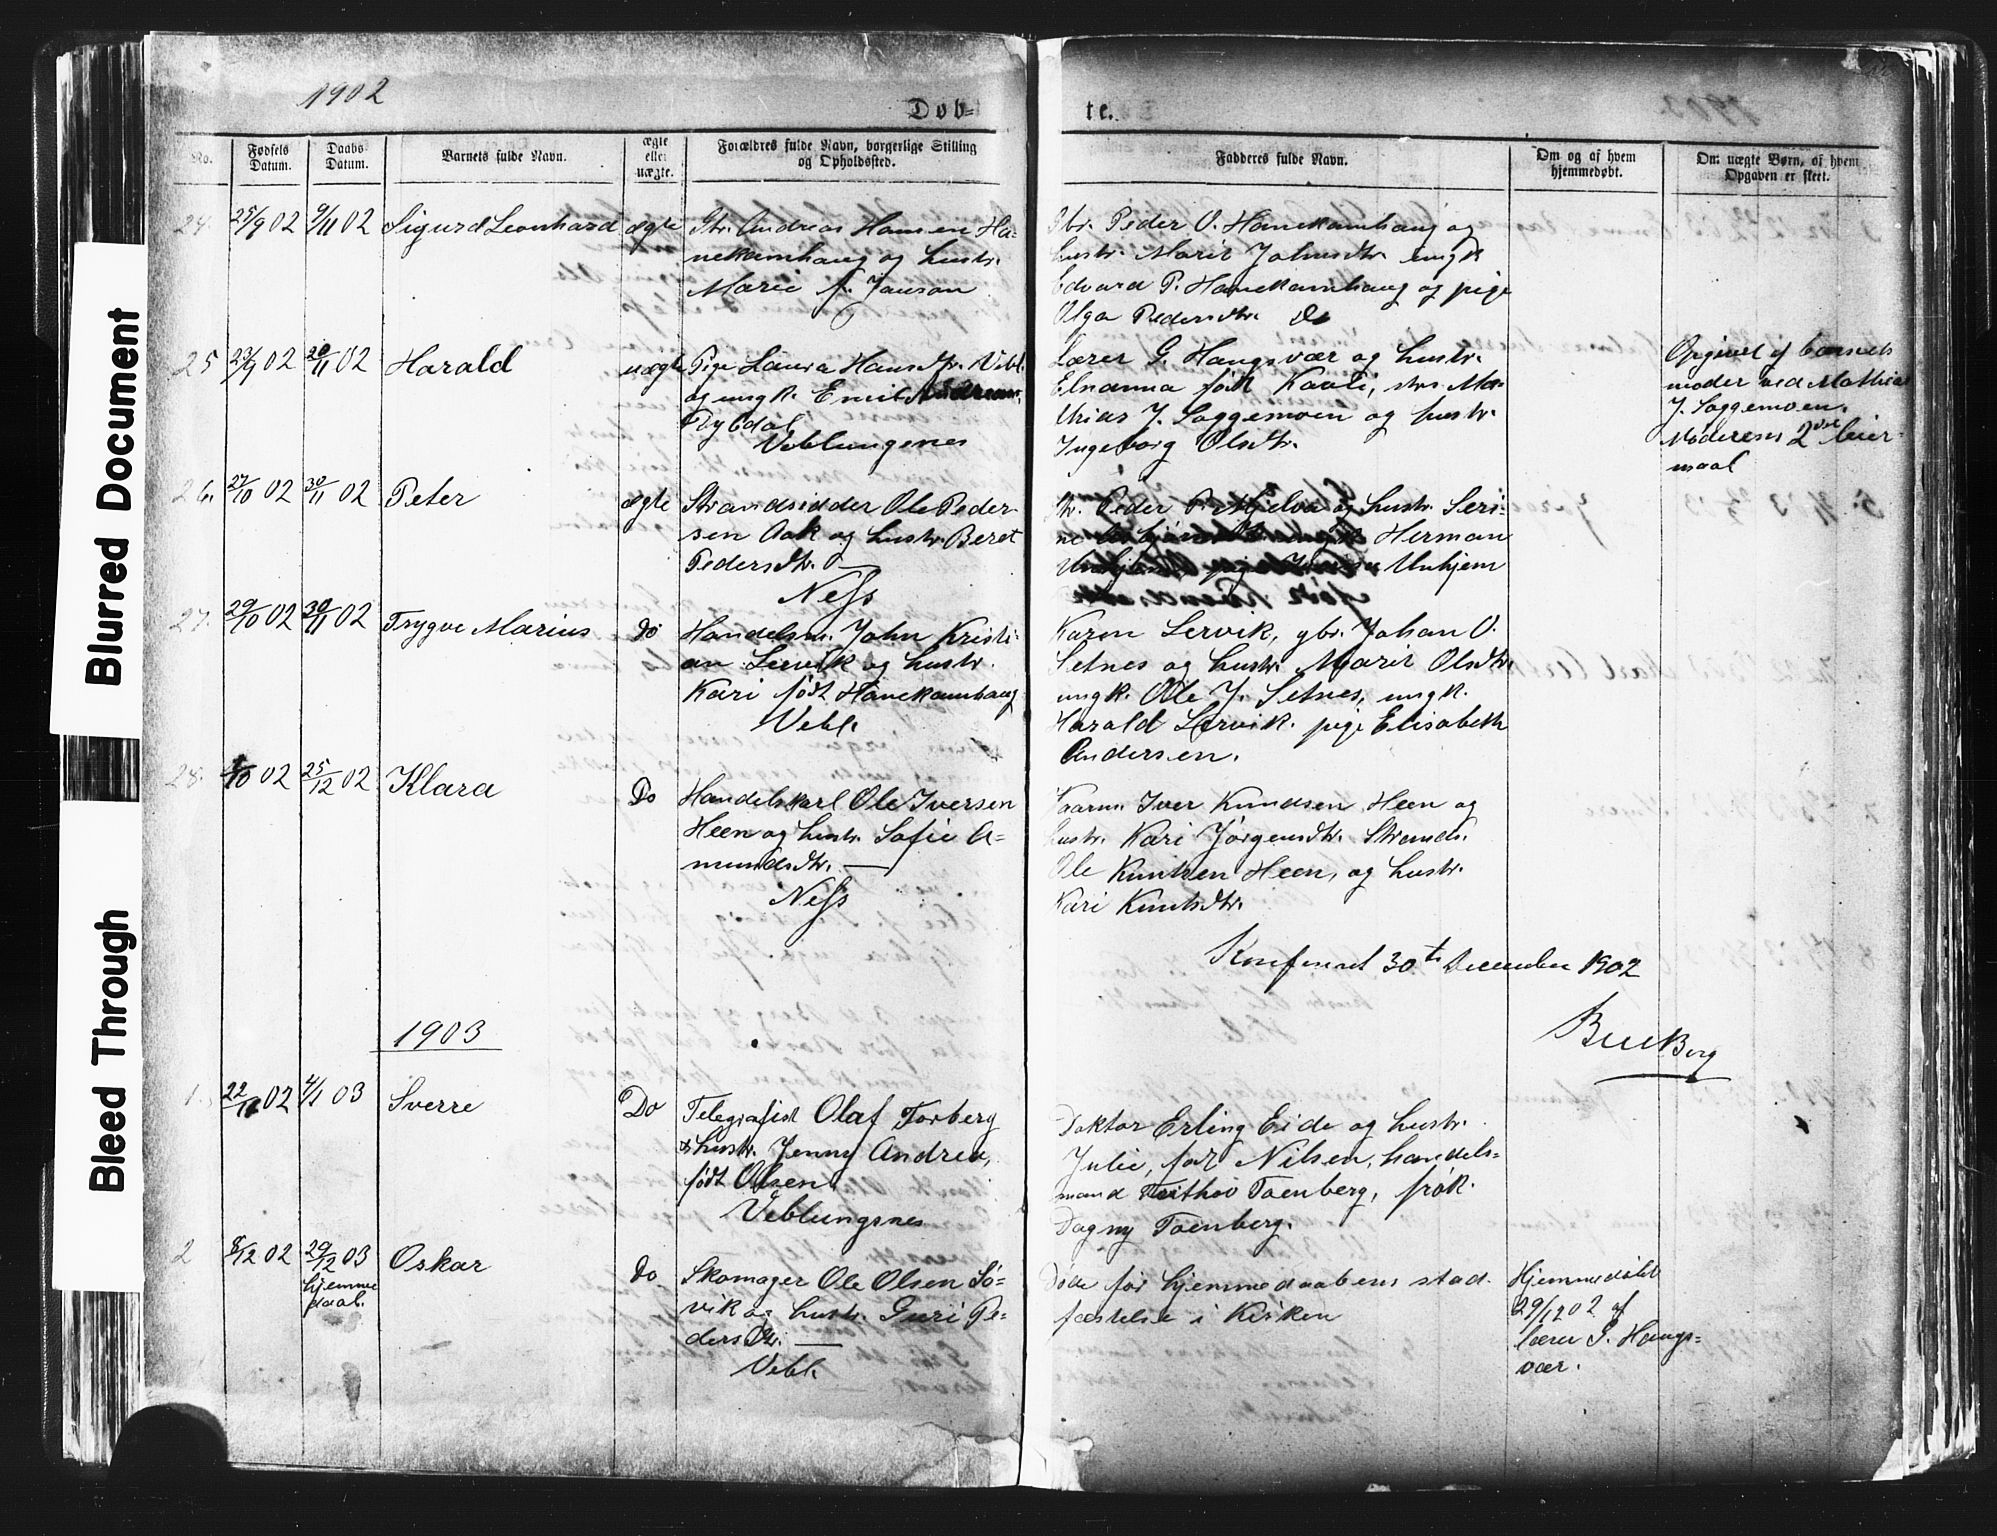 1902
Døb-
te.
No.
Fødsels
Datum.
Daabs
Datum.
Barnets fulde Navn.
ægte
eller
uægte.
Forældres fulde Navn, borgerlige Stilling
og Opholdssted.
Fadderes fulde Navn.
Om og af hvem
hjemmedøbt.
Om uægte Børn, af hvem
Opgaven er skeet.
24. 25/9 02 9/11 02 Sigurd Leonhard ægte
Andreas Hansen Ha-
nekamhaug og hustr.
Marie J. Janson
Gbr. Peder O. Hanekamhaug og
hustr. Marit Johnsdtr. ungk
Edvard P. Hanekamhaug og pige
Olga Pedersdtr. Do
25 23/9 02 20/11 02 Harald uægte
Pige Laura Hansdtr. Vebl.
og ungk. Emil
Tybdal
Veblungsnes
Lærer G. Haugsvær og hustr.
Elnanna født Kaali, Ma-
thias J. Soggemoen og hustr.
Ingeborg Olsdtr.
Opgivet af barnets
moder ved Mathias
J. Soggemoen.
Moderens 2det leier-
maal
26. 27/10 02 30/11 02 Peter ægte
Strandsidder Ole Peder-
sen Aak og hustr. Beret
Pedersdtr. —
Ness
Peder P. Mjelva og hustr. Seri-
ne ungk Herman
Unhjem
født
27. 29/10 02 30/11 02 Trygve Marius Do
Handelsm. John Kristi-
an Lervik og hustr.
Kari født Hanekamhaug
Vebl.
Karen Lervik, gbr. Johan O.
Setnes og hustr. Marit Olsdtr,
ungk. Ole J. Setnes, ungk.
Harald Lervik. pige Elisabeth
Andersen.
28. /10 02 25/12 02 Klara Do
Handelskarl Ole Iversen
Heen og hustr. Sofie A-
mundsdtr. —
Ness
Kaarm. Iver Knudsen Heen og
hustr. Kari Jörgensdtr. Strands.
Ole Knutsen Heen, og hustr.
Kari Knutsdtr.
Konfereret 30te December 1902
Bull Berg
1903
1. 22/11 02 4/1 03 Sverre Do
Telegrafist Olaf Torberg
& hustr. Jenny Andrea,
født Olsen
Veblungsnes
Doktor Erling Eide og hustr.
Julie, før Nilsen, handels-
mand Frithiov Taenberg, frøk.
Dagny Taenberg.
2 8/12 02 29/12 03 Oskar Do
hjemme
daab.
Skomager Ole Olsen Sö-
vik og hustr. Guri Pe-
dersdtr. —
Vebl.
Døde før hjemmedaabens stad-
fæstelse i Kirken
Hjemmedöbt
29/12 02 af
lærer G. Haugs-
vær.
Blurred Document
Bleed Through